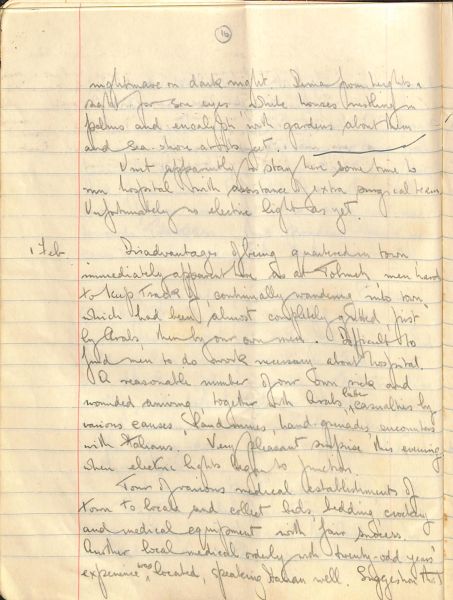 16
nightmare on dark night. Derna from heights a
sight for sore eyes. White houses nestling in
palms and eucalypti with gardens about them
and sea shore at its feet.
Unit apparently to stay here some time to
run hospital with assistance of extra surgical team.
Unfortunately no electric light as yet.
1 Feb Disadvantages of being quartered in town
immediately apparent here as at Tolmeta men hard
to keep track of, continually wandering into town
which had been almost completely gutted, first
by Arabs, then by our own men. Difficult to
find men to do work necessary about hospital.
A reasonable number of our own sick and
wounded arriving together with Arabs, later casualties by
various causes, land mines, hand-grenades, encounters
with Italians. Very pleasant surprise this evening
when electric lights began to function.
Tour of various medical establishments of
town to locate and collect beds, bedding crockery
and medical equipment with fair success.
Further local medical orderly with twenty-odd years'
experience was located, speaking Italian well. Suggestion that